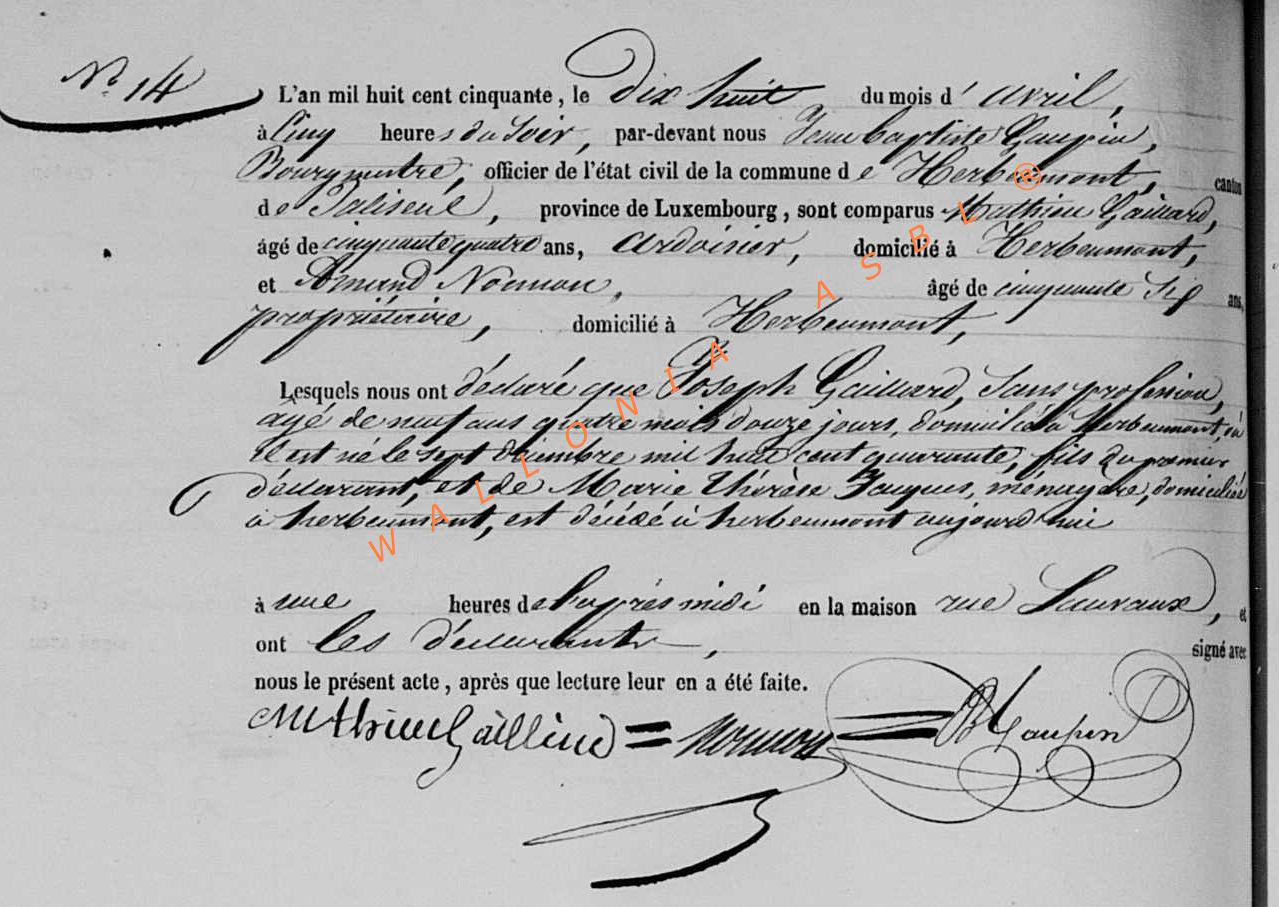 N° 14
L'an mil huit cent cinquante, le dix huit du mois d'avril,
à cinq heures du soir, par-devant nous Jean baptiste Gaupin,
Bourgmestre, officier de l'état civil de la commune de Herbeumont, canton
de Paliseul, province de Luxembourg, sont comparus Mathieu Gaillard,
âgé de cinquante quatre ans, ardoisier, domicilié à Herbeumont,
et Amand Nonnon, âgé de cinquante six ans,
propriétaire, domicilié à Herbeumont,
Lesquels nous ont déclaré que Joseph Gaillard, sans profession,
agé de neuf ans quatre mois douze jours, domicilié à herbeumont, où
il est né le sept décembre mil huit cent quarante, fils du premier
déclarant, et de Marie thérèse Jacques, ménagère, domiciliée
à herbeumont, est décédé à herbeumont aujourd'hui
à une heures de l'après midi en la maison rue , et
ont les déclarants, signé avec
nous le présent acte, après que lecture leur en a été faite.
Mathieu Gailliard = Nonnon = JB Gaupin
WALLONIA ASBL ®